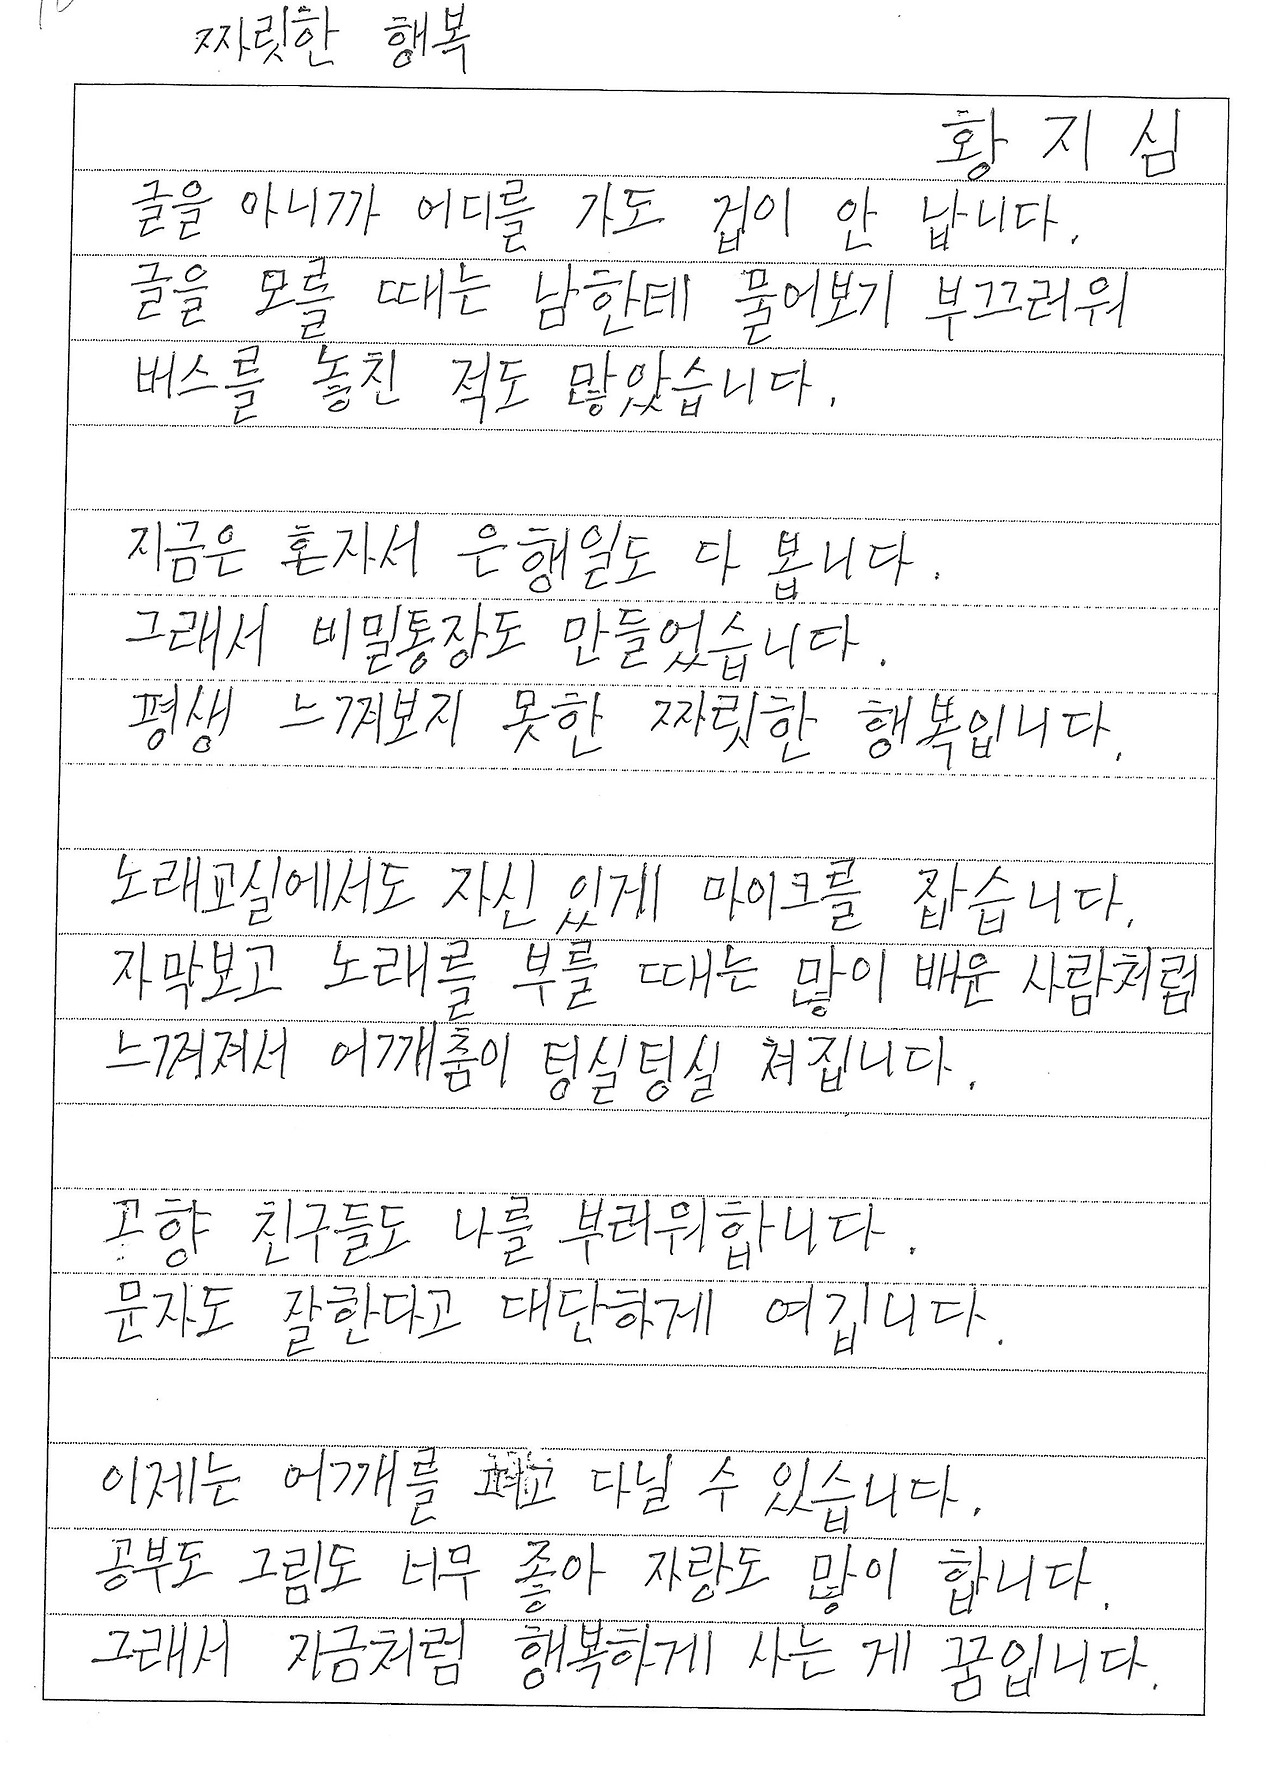 짜릿한 행복
황지심
글을 아니까 어디를 가도 겁이 안 납니다.
글을 모를 때는 남한테 물어보기 부끄러워
버스를 놓친 적도 많았습니다.
지금은 혼자서 은행일도 다 봅니다.
그래서 비밀통장도 만들었습니다.
평생 느껴보지 못한 짜릿한 행복입니다.
노래교실에서도 자신 있게 마이크를 잡습니다.
자막보고 노래를 부를 때는 많이 배운 사람처럼
느껴져서 어깨춤이 텅실텅실 쳐집니다.
고향 친구들도 나를 부러워합니다.
문자도 잘한다고 대단하게 여깁니다.
이제는 어깨를 펴고 다닐 수 있습니다.
공부도 그림도 너무 좋아 자랑도 많이 합니다.
그래서 지금처럼 행복하게 사는 게 꿈입니다.